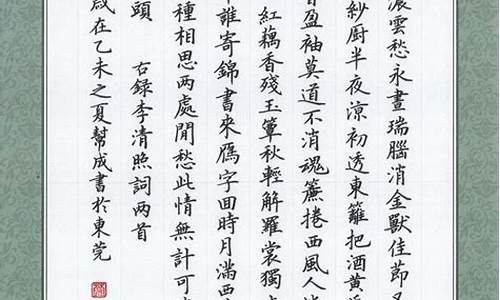 濃雲愁永晝瑞腦消金獸佳節又
紗厨半夜涼初透東籬把酒黃
香盈袖莫道不消魂簾捲西風人
紅藕香殘玉簟秋輕解羅裳獨
誰寄錦書來鴈字囬時月滿西
種相思两處閒愁此情無計可
頭 右録李清照詞两首
歲在乙未之夏幫成書於東莞